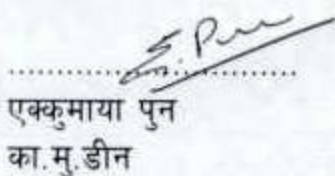 एक्कुमाया पुन
का.मु.डीन